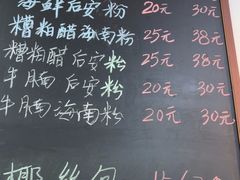 海鲜后安粉 20元 30元
糟粕醋海南粉 25元 38元
糟粕醋后安粉 25元 38元
牛腩后安粉 20元 30元
牛腩海南粉 20元 30元
椰丝包